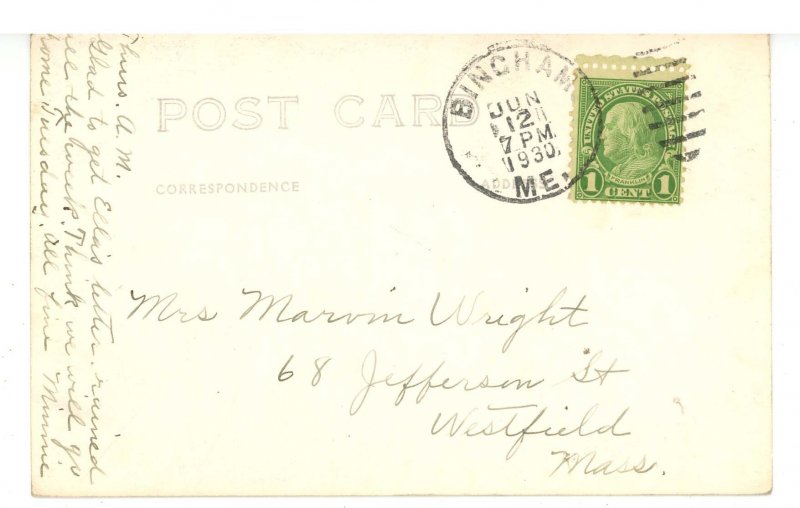 Thurs. A. M.
Glad to get Ella's letter. rained
all the week. Think we will go
home Tuesday. All fine Minnie
POST CARD
CORRESPONDENCE
ADDRESS
BINGHAM
JUN
12
7 PM
1930
ME.
UNITED STATES POSTAGE
FRANKLIN
1 CENT 1
Mrs Marvin Wright
68 Jefferson St
Westfield
Mass.